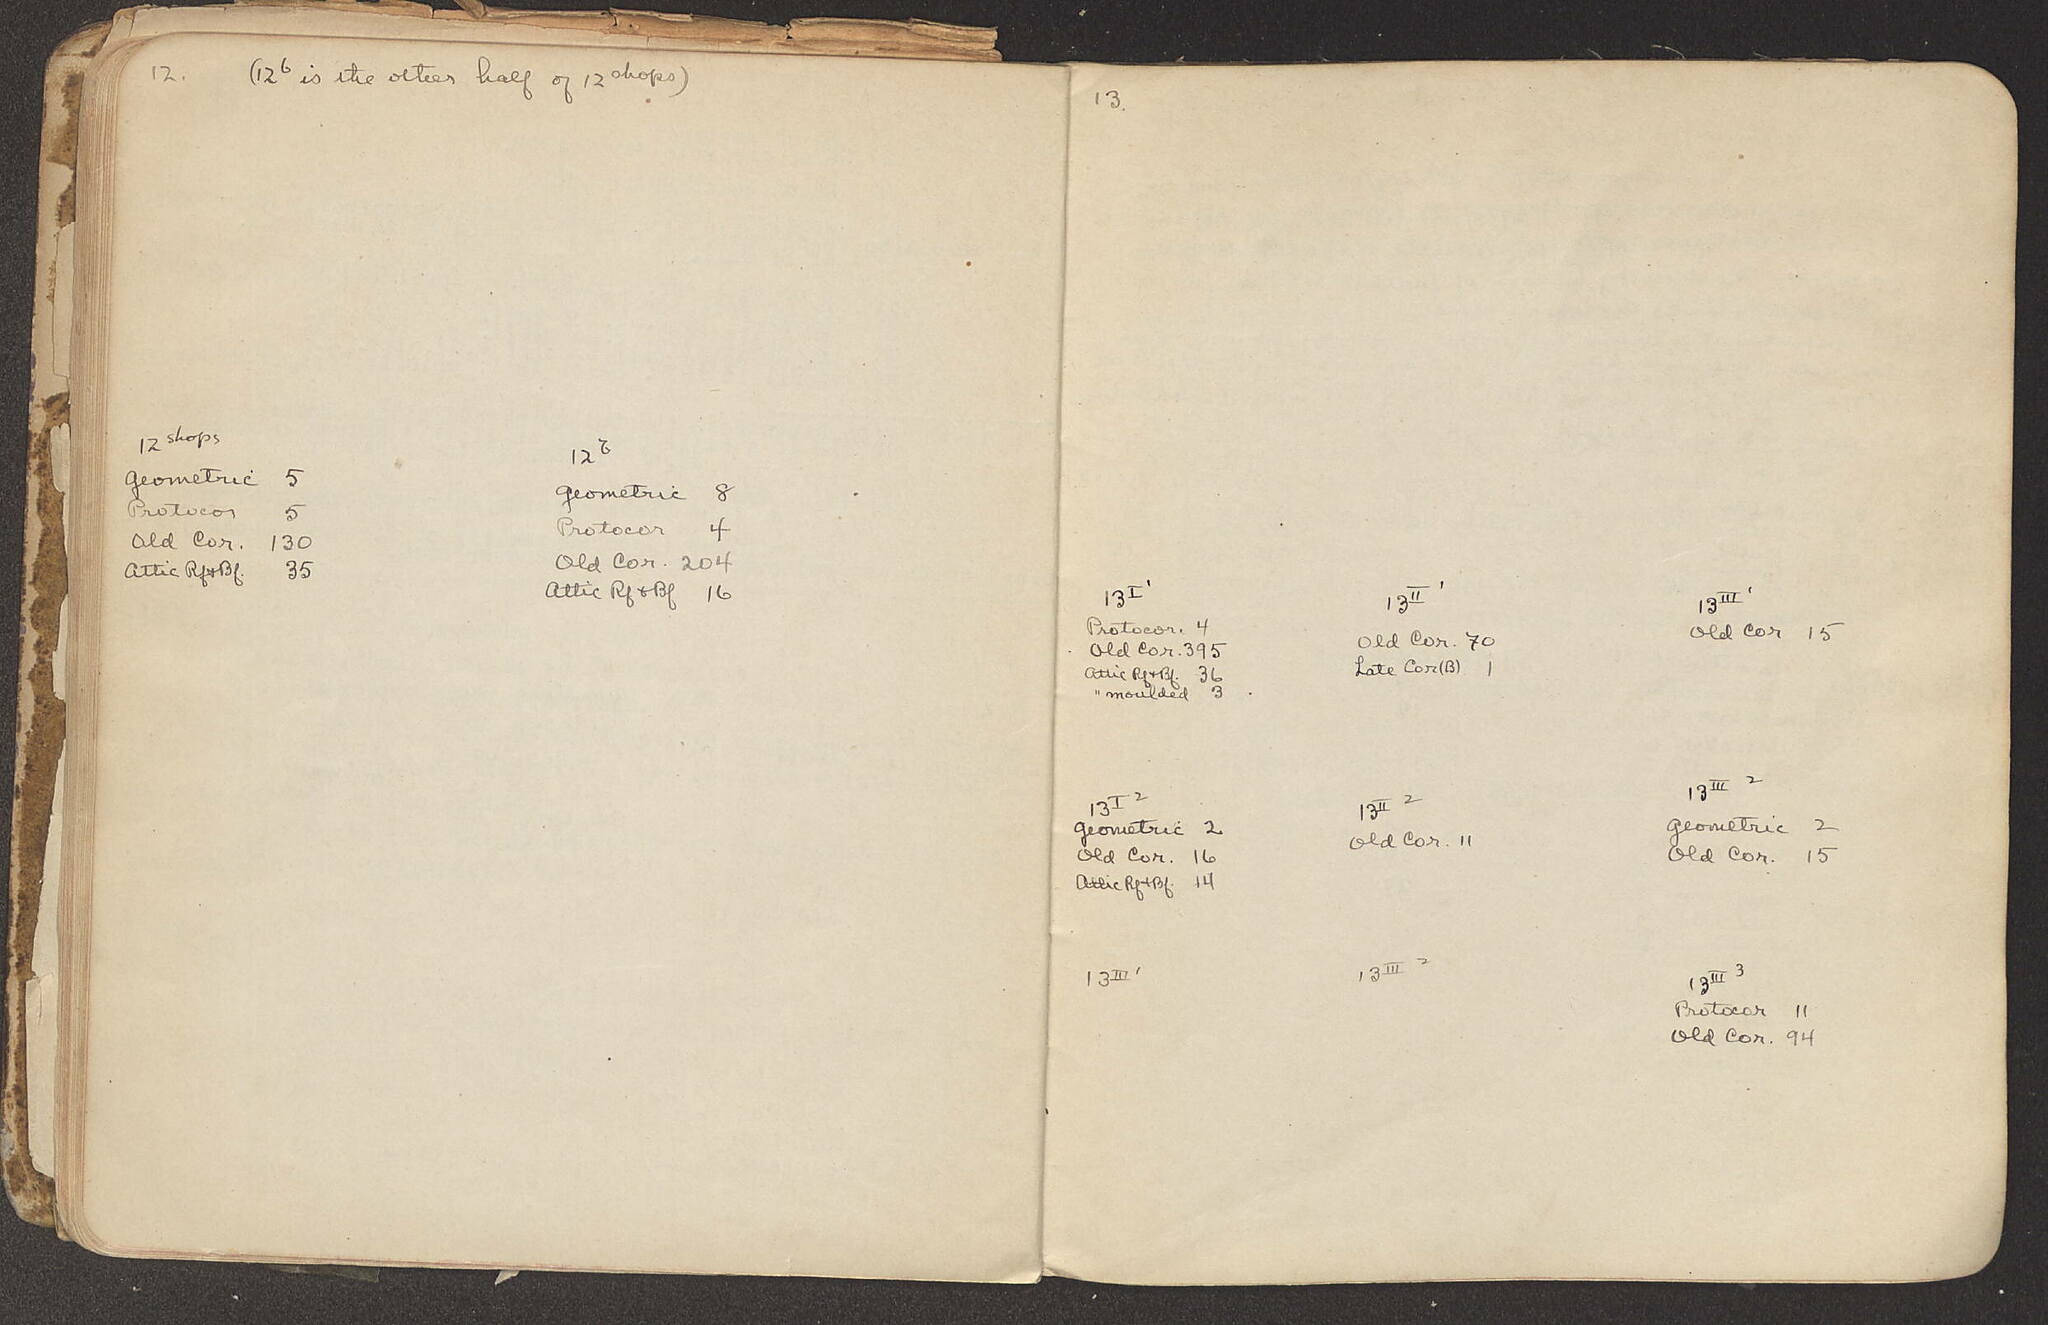 12. (12ᵇ is the other half of 12 shops)
12 shops
Geometric 5
Protocor 5
Old Cor. 130
Attic Rf+Bf. 35
12ᵇ
Geometric 8
Protocor 4
Old Cor. 204
Attic Rf+Bf 16
13.
13 I ¹
Protocor. 4
Old Cor. 395
Attic Rf+Bf. 36
" moulded 3
13 II ¹
Old Cor. 70
Late Cor(B) 1
13 III ¹
Old Cor 15
13 I ²
Geometric 2
Old Cor. 16
Attic Rf+Bf. 14
13 II ²
Old Cor. 11
13 III ²
Geometric 2
Old Cor. 15
13 III ¹
13 III ²
13 III ³
Protocor 11
Old Cor. 94